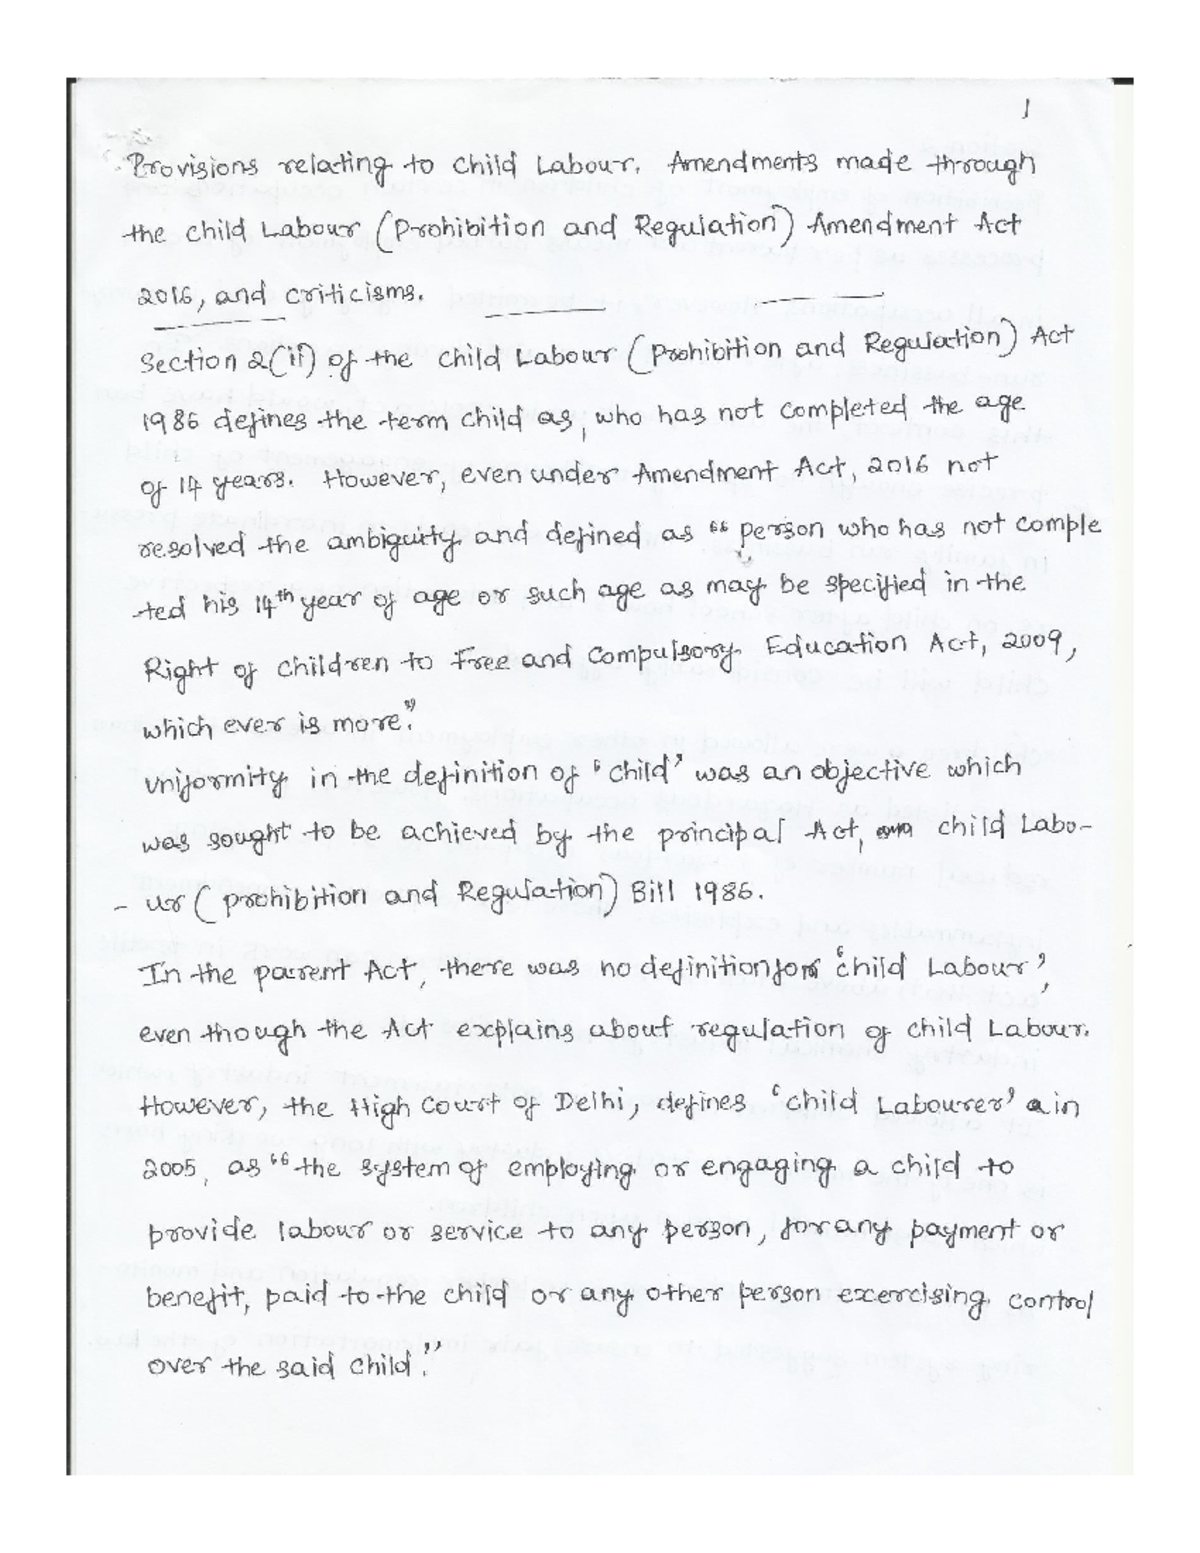 1
Provisions relating to Child Labour. Amendments made through
the child Labour (Prohibition and Regulation) Amendment Act
2016, and criticisms.
Section 2(ii) of the Child Labour (Prohibition and Regulation) Act
1986 defines the term child as, who has not completed the age
of 14 years. However, even under Amendment Act, 2016 not
resolved the ambiguity and defined as “person who has not comple
ted his 14th year of age or such age as may be specified in the
Right of Children to Free and Compulsory Education Act, 2009,
which ever is more.”
Uniformity in the definition of ‘child’ was an objective which
was sought to be achieved by the principal Act, child Labo-
- ur (prohibition and Regulation) Bill 1986.
In the parent Act, there was no definition for ‘child Labour’,
even though the Act explains about regulation of child Labour.
However, the High Court of Delhi, defines ‘child Labourer’ in
2005, as “the system of employing or engaging a child to
provide labour or service to any person, for any payment or
benefit, paid to the child or any other person exercising control
over the said child.”